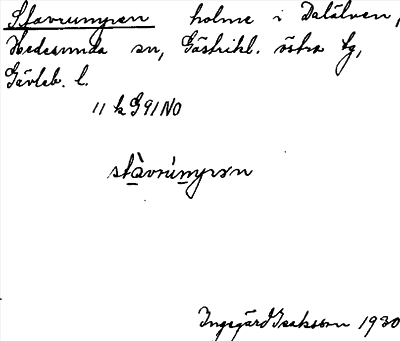 Stavrumyran holme i Dalälven,
Hedesunda sn, Gästrikl. östra tg,
Gävleb. l.
11 k G 91 NO
stàvrúmyrɷn
Ingegärd Isaksson 1930